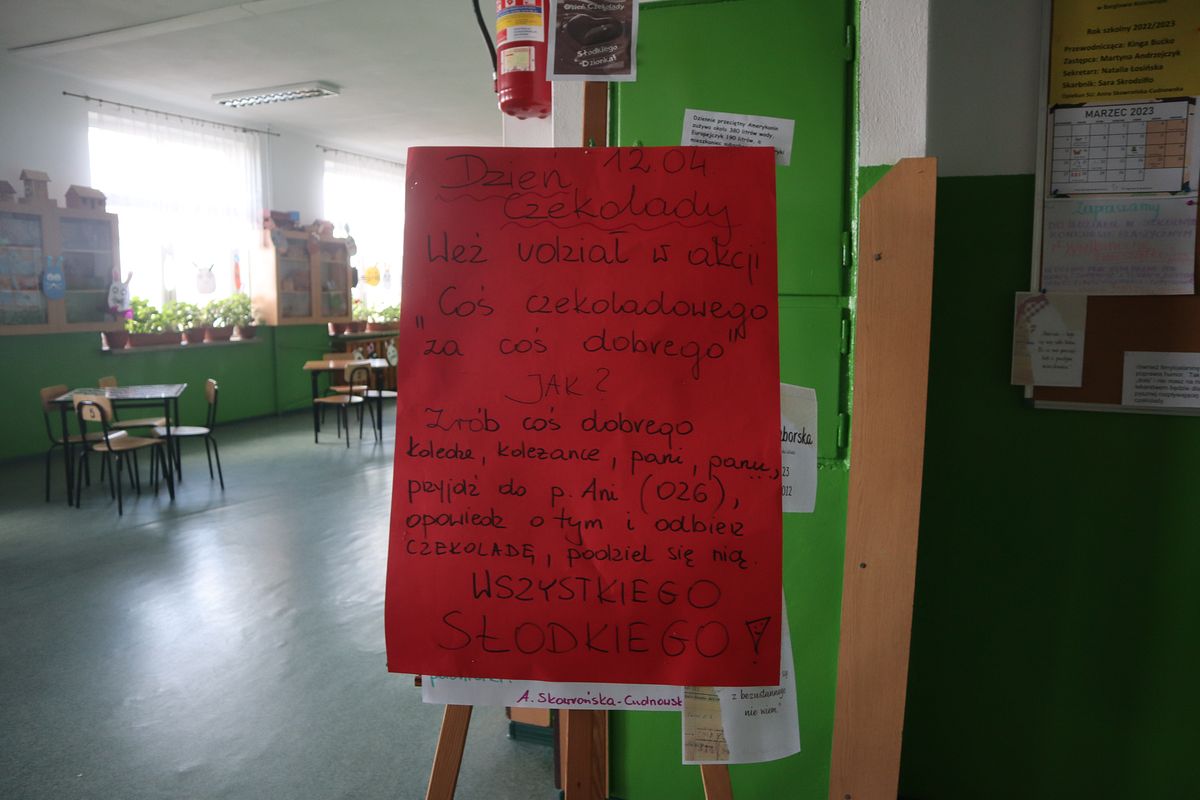 Dzień Czekolady
Słodkiego
Dzionka!
Dziennie przeciętny Amerykanin
zużywa około 380 litrów wody,
Europejczyk 190 litrów, a
12.04.
Dzień
Czekolady
Weź udział w akcji
"Coś czekoladowego
za coś dobrego"
JAK?
Zrób coś dobrego
koledze, koleżance, pani, panu,
przyjdź do p. Ani (026),
opowiedz o tym i odbierz
CZEKOLADĘ, podziel się nią.
WSZYSTKIEGO
SŁODKIEGO!
A. Skowrońska-Cudnowsk
borska
23
012
z bezustannego
nie wiem."
Rok szkolny 2022/2023
Przewodnicząca: Kinga Bućko
Zastępca: Martyna Andrzejczyk
Sekretarz: Natalia Łosińska
Skarbnik: Sara Skrodziłło
Opiekun SU: Anna Skowrońska-Cudnowska
MARZEC 2023
Zapraszamy
5